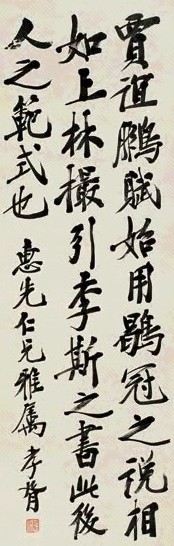 賈誼鵬賦始用鶡冠之說相
如上林撮引李斯之書此後
人之範式也
惠先仁兄雅属 孝胥